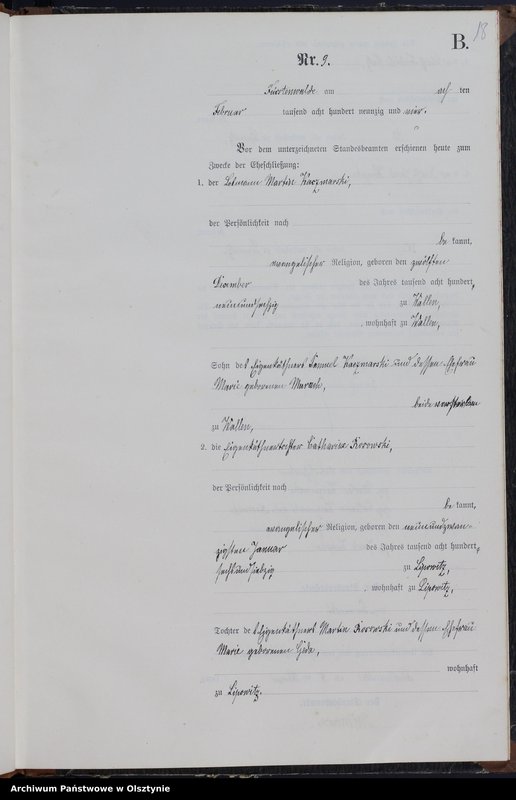 18
B.
Nr. 9.
Fürstenwalde am ach ten
Februar tausend acht hundert neunzig und vier.
Vor dem unterzeichneten Standesbeamten erschienen heute zum
Zwecke der Eheschließung:
1. der Losmann Martin Kaczmarski,
der Persönlichkeit nach
be kannt,
evangelischer Religion, geboren den zwölften
Dezember des Jahres tausend acht hundert
neunundsechzig zu Wallen,
, wohnhaft zu Wallen,
Sohn des Eigenkäthners Samuel Kaczmarski und dessen Ehefrau
Marie geborenen
beide verstorben
zu Wallen,
2. die Eigenkäthnertochter Catharina Kosowski,
der Persönlichkeit nach
be kannt,
evangelischer Religion, geboren den neunundzwan-
zigsten Januar des Jahres tausend acht hundert
sechsundsiebzig zu Lipowitz,
, wohnhaft zu Lipowitz,
Tochter des Eigenkäthners Martin Kosowski und dessen Ehefrau
Marie geborenen
wohnhaft
zu Lipowitz.
Archiwum Państwowe w Olsztynie